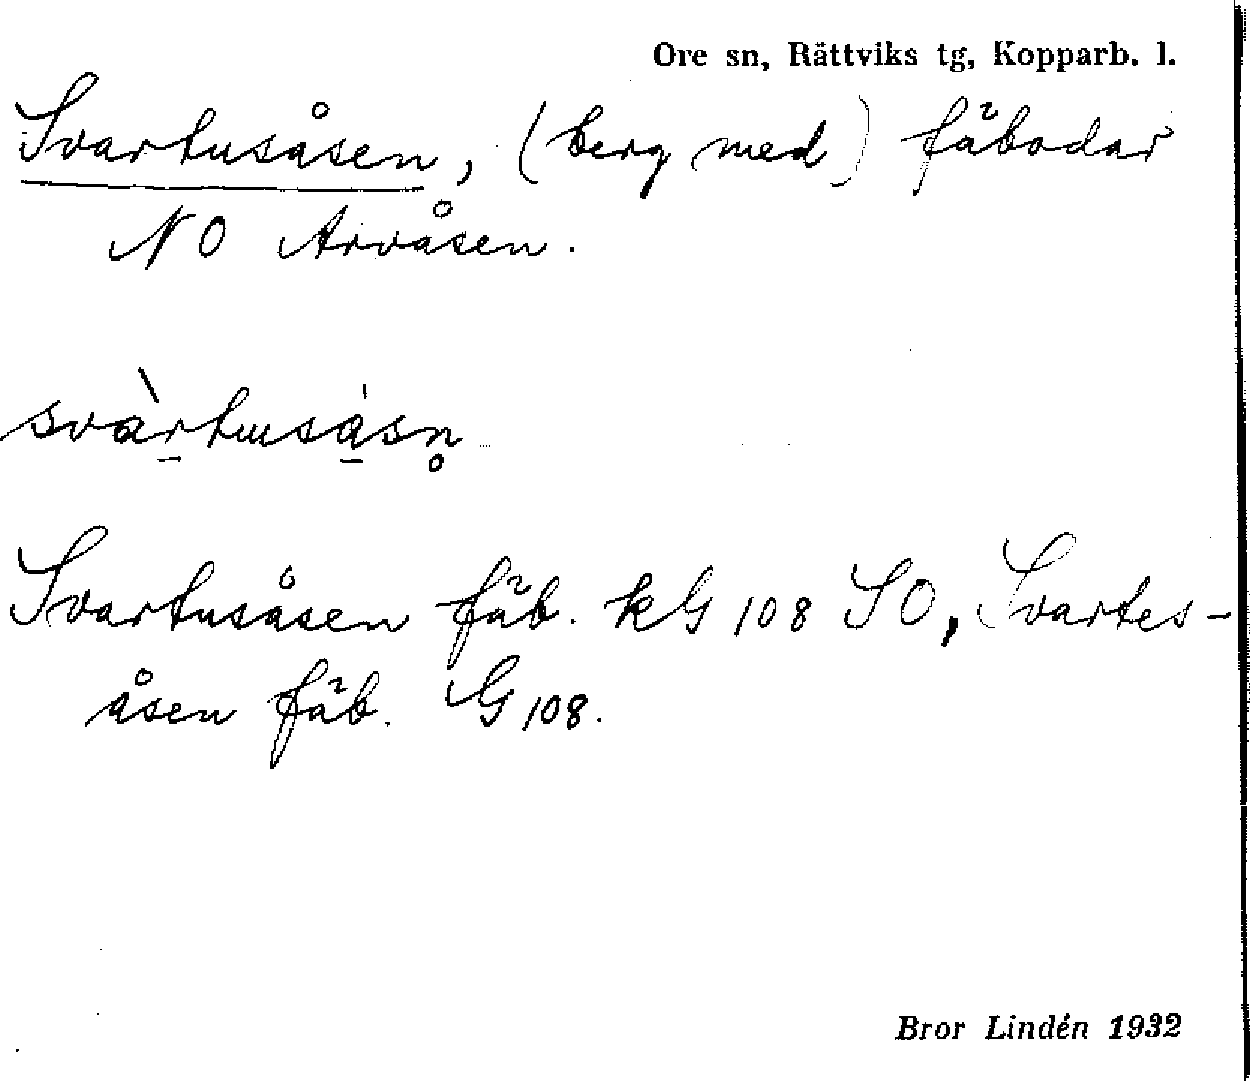 Ore sn, Rättviks tg, Kopparb. l.
Svartusåsen, (berg med) fäbodar
NO Arvåsen.
svàrtusåsn̥
Svartusåsen fäb. kG 108 SO, Svartes-
åsen fäb. G 108.
Bror Lindén 1932